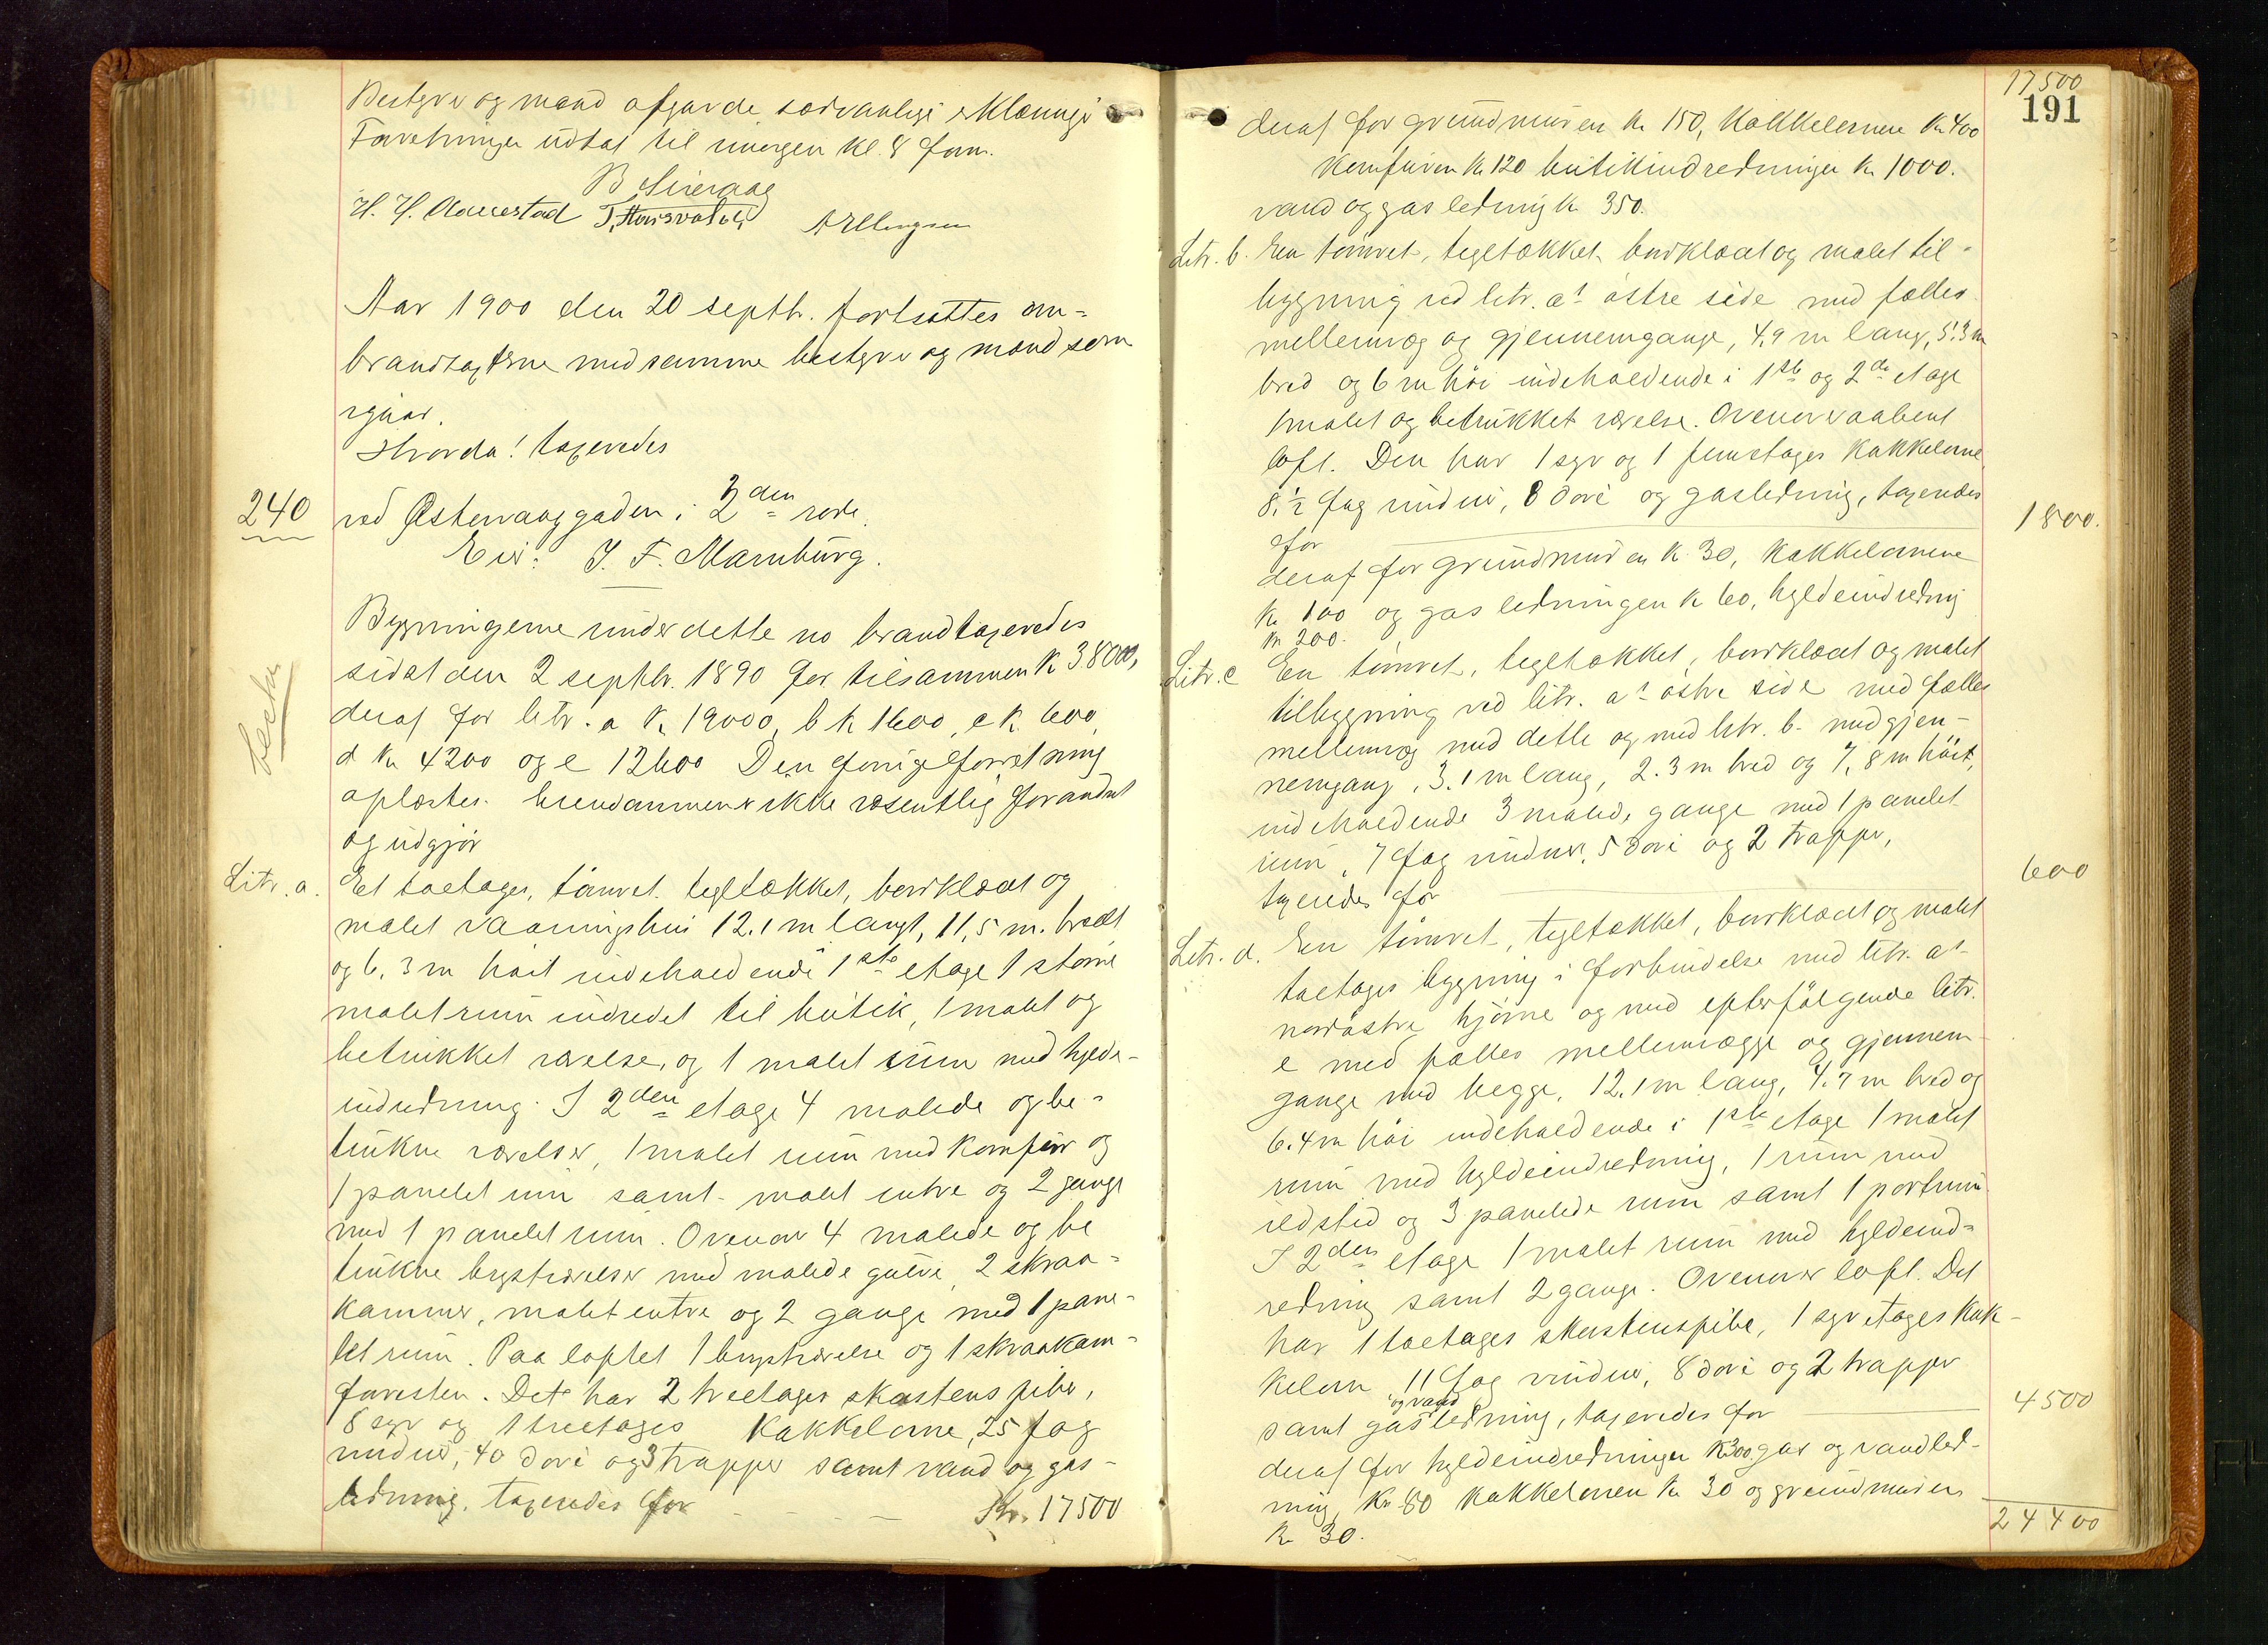 Bestyrer og mænd afgav de sædvanlige erklæringer
Forretningen udsat til imorgen kl. 8 form.
H. H. Aanestad
A Ellingsen
Aar 1900 den 20 septbr. fortsattes om=
brandtaxterne med samme bestyrer og mænd som
igaar.
Hvorda! taxeredes
240 ved Østervaaggaden i 2den rode.
Eier: J. F. Marnburg.
Bygningerne under dette no brandtaxeredes
sidst den 2 septbr. 1890 for tilsammen K 38000,
deraf for litr. a Kr 19000, b k 1600, c k. 600,
d Kr 4200 og e 12600 Den forrige forretning
oplæstes. Eiendommen er ikke væsentlig forandret
og udgjør
Litr. a. Et toetages, tømret tegltækket, bordklædt og
malet vaaningshus 12.1 m langt, 11,5 m. bredt
og 6,3 m høit indeholdende i 1ste etage 1 større
malet rum indredet til butik, 1 malet og
betrukket værelse, og 1 malet rum med hylde-
indredning. I 2den etage 4 malede og be=
trukne værelser, 1 malet rum med komfur og
1 panelet rum samt malet entre og 2 gange
med 1 panelet rum. Ovenover 4 malede og be
trukne brystværelser med malede gulve, 2 skraa=
kammer, malet entre og 2 gange med 1 pane-
let rum. Paa loftet 1 brystværelse og 1 skraakam=
Det har 2 treetages skorstenspiber,
8 syv og 1 treetages kakkelovne, 25 fag
vinduer, 40 døre og 3 trapper samt vand og gas-
ledning, taxeredes for - - - - Kr. 17500
17500
191
deraf for grundmuren Kr 150, Kakkelovnene Kr 400
Komfuren Kr 120 butikindredningen Kr 1000.
vand og gasledning Kr 350.
Litr. b. En tømret, tegltækket bordklædt og malet til-
bygning ved litr. a's østre side med fælles
mellemvæg og gjennemgange, 4,9 m lang, 5.3 m
bred og 6 m høi indeholdende i 1ste og 2den etage
1 malet og betrukket værelse. Ovenover aabent
loft. Den har 1 syv og 1 femetages Kakkelovne
8 1/2 fag vinduer, 8 døre og gasledning, taxeredes
for 1800.
deraf for grundmuren K 30, Kakkelovnene
Kr 100 og gasledningen K 60, hyldeindredning
Kr 200.
Litr. c En tømret, tegltækket, bordklædt og malet
tilbygning ved litr. a's østre side med fælles
mellemvæg med dette og med litr. b. med gjen-
nemgang, 3.1 m lang, 2.3 m bred og 7,8 m høit,
indeholdende 3 malede gange med 1 panelet
rum, 7 fag vinduer, 5 døre og 2 trapper,
taxeredes for 600
Litr. d. En tømret, tegltækket, bordklædt og malet
toetages bygning i forbindelse med litr. a's
nordøstre hjørne og med efterfølgende litr.
e med fælles mellemvægge og gjennem-
gange med begge, 12.1 m lang, 4.7 m bred og
6.4 m høi indeholdende i 1ste etage 1 malet
rum med hyldeindredning, 1 rum med
ildsted og 3 panelede rum samt 1 portrum.
I 2den etage 1 malet rum med hyldeind=
redning samt 2 gange. Ovenover loft. Det
har 1 toetages skorstenspibe, 1 syv etages kak-
kelovn, 11 fag vinduer, 8 døre og 2 trapper
samt gas og vand ledning, taxeredes for 4500
deraf for hyldeindredningen K 300 gas og vandled-
ning Kr 80 kakkelovnen Kr 30 og grundmuren
Kr 30.
24400